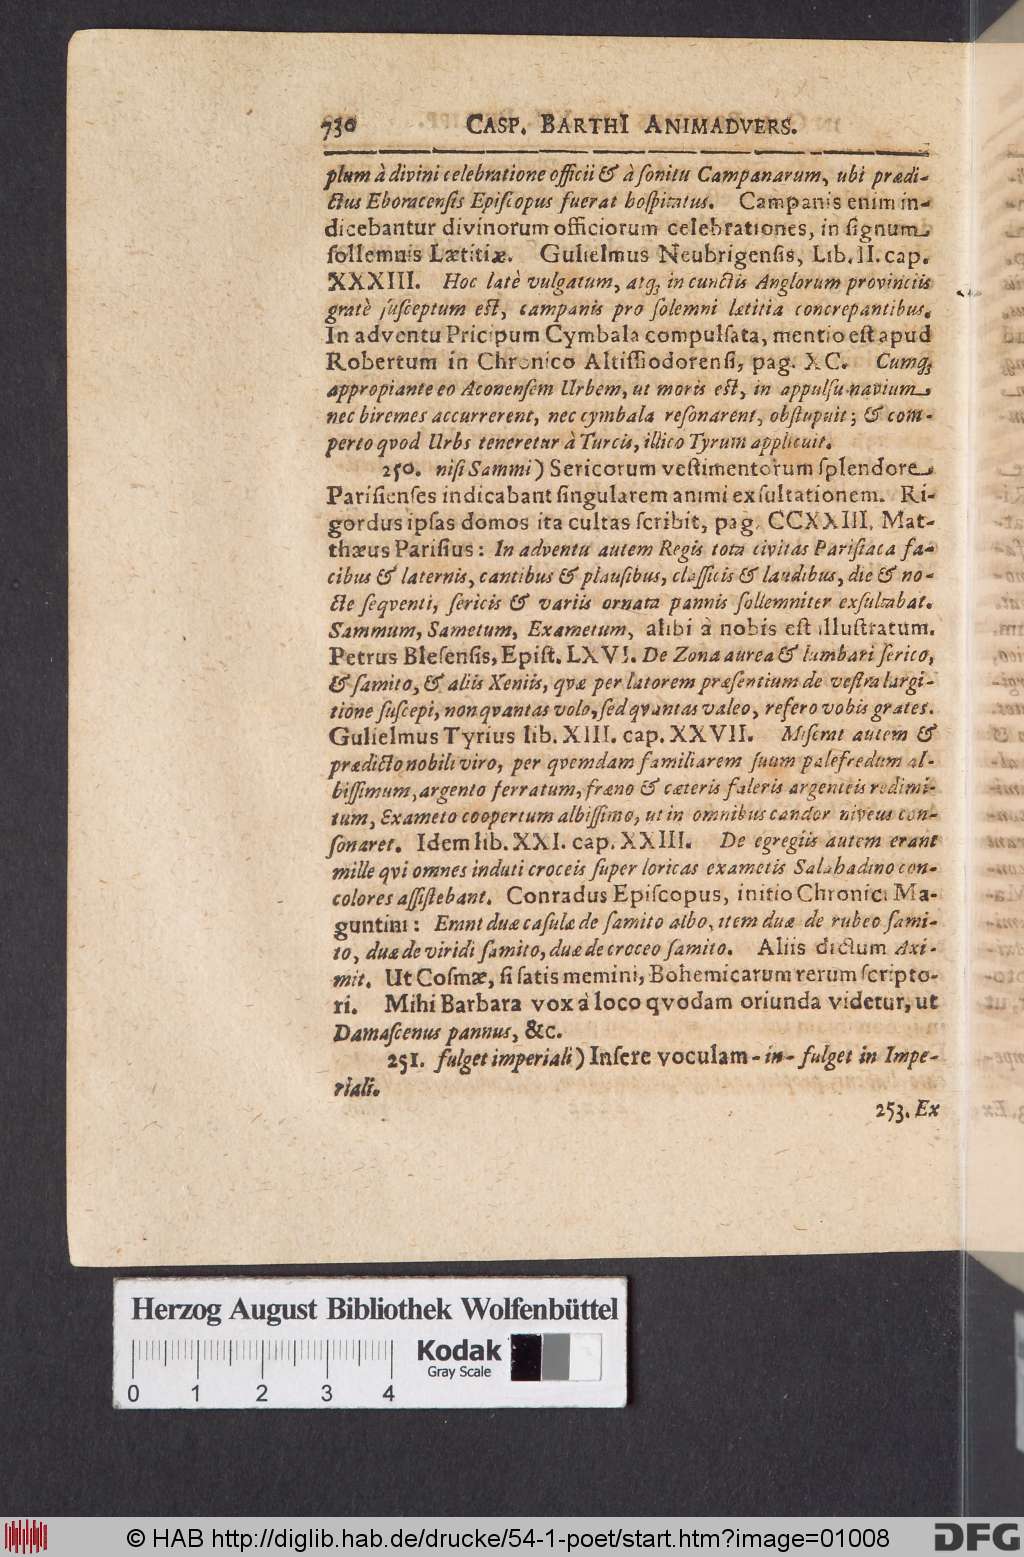 730 CASP. BARTHI ANIMADVERS.
plum à divini celebratione officii & à ſonitu Campanarum, ubi prædi-
ctus Eboracenſis Epiſcopus fuerat hoſpitatus. Campanis enim in-
dicebantur divinorum officiorum celebrationes, in ſignum
ſollemnis Lætitiæ. Gulielmus Neubrigenſis, Lib. II. cap.
XXXIII. Hoc latè vulgatum, atq; in cunctis Anglorum provinciis
gratè ſuſceptum eſt, campanis pro ſolemni lætitia concrepantibus.
In adventu Pricipum Cymbala compulſata, mentio eſt apud
Robertum in Chronico Altiſſiodorenſi, pag. XC. Cumq;
appropiante eo Aconenſem Urbem, ut moris eſt, in appulſu navium
nec biremes accurrerent, nec cymbala reſonarent, obſtupuit; & com-
perto qvod Urbs teneretur à Turcis, illico Tyrum applicuit.
250. niſi Sammi) Sericorum veſtimentorum ſplendore
Pariſienſes indicabant ſingularem animi exſultationem. Ri-
gordus ipſas domos ita cultas ſcribit, pag. CCXXIII. Mat-
thæus Pariſius: In adventu autem Regis tota civitas Pariſiaca fa-
cibus & laternis, cantibus & plauſibus, claſſicis & laudibus, die & no-
cte ſeqventi, ſericis & variis ornata pannis ſollemniter exſultabat.
Sammum, Sametum, Exametum, alibi à nobis eſt illuſtratum.
Petrus Bleſenſis, Epiſt. LXVI. De Zona aurea & lumbari ſerico,
& ſamito, & aliis Xeniis, qvæ per latorem præſentium de veſtra largi-
tione ſuſcepi, non qvantas volo, ſed qvantas valeo, refero vobis grates.
Gulielmus Tyrius lib. XIII. cap. XXVII. Miſerat autem &
prædicto nobili viro, per qvemdam familiarem ſuum palefredum al-
biſſimum, argento ferratum, fræno & cæteris faleris argenteis redimi-
tum, Exameto coopertum albiſſimo, ut in omnibus candor niveus con-
ſonaret. Idem lib. XXI. cap. XXIII. De egregiis autem erant
mille qvi omnes induti croceis ſuper loricas exametis Salahadino con-
colores aſſiſtebant. Conradus Epiſcopus, initio Chronici Ma-
guntini: Erant duæ caſulæ de ſamito albo, item duæ de rubeo ſami-
to, duæ de viridi ſamito, duæ de croceo ſamito. Aliis dictum Axi-
mit. Ut Coſmæ, ſi ſatis memini, Bohemicarum rerum ſcripto-
ri. Mihi Barbara vox à loco qvodam oriunda videtur, ut
Damaſcenus pannus, &c.
251. fulget imperiali) Inſere voculam - in - fulget in Impe-
riali.
253. Ex
Herzog August Bibliothek Wolfenbüttel
Kodak
Gray Scale
0 1 2 3 4
© HAB http://diglib.hab.de/drucke/54-1-poet/start.htm?image=01008
DFG